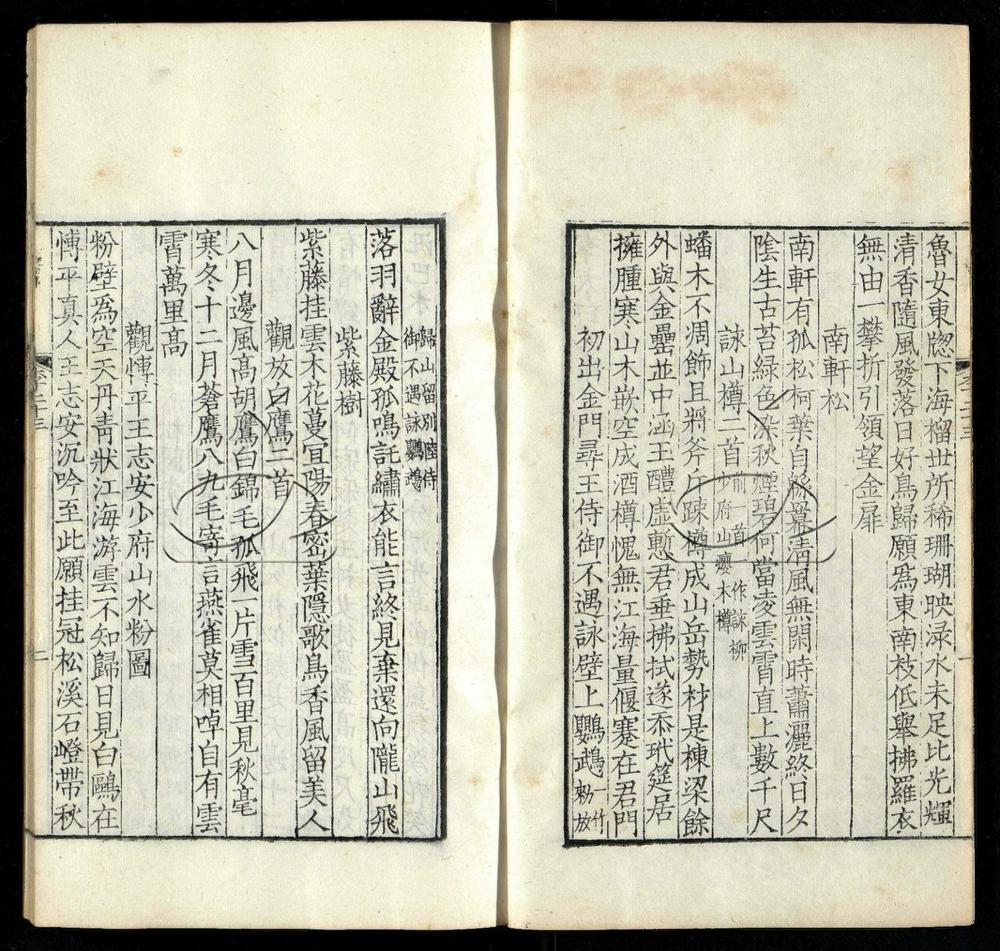 魯女東牎下海榴丗所稀珊瑚映渌水未足比光輝
清香隨風發落日好鳥歸願爲東南枝低舉拂羅衣
無由一攀折引領望金扉
南軒松
南軒有孤松柯葉自緜冪清風無閑時蕭灑終日夕
陰生古苔緑色染秋煙碧何當凌雲霄直上數千尺
詠山樽二首前一首作詠柳少府山癭木樽
蟠木不凋飾且將斧斤疎樽成山岳勢材是棟梁餘
外與金罍並中涵玉醴虛慙君垂拂拭遂忝玳筵居
擁腫寒山木嵌空成酒樽愧無江海量偃蹇在君門
初出金門尋王侍御不遇詠壁上鸚鵡一竹粉放
歸山留別陸侍御不遇詠鸚鵡
落羽辭金殿孤鳴託繡衣能言終見棄還向隴山飛
紫藤樹
紫藤挂雲木花蔓宜陽春密葉隱歌鳥香風留美人
觀放白鷹二首
八月邊風髙胡鷹白錦毛孤飛一片雪百里見秋毫
寒冬十二月蒼鷹八九毛寄言燕雀莫相啅自有雲
霄萬里髙
觀慱平王志安少府山水粉圖
粉壁爲空天丹青狀江海游雲不知歸日見白鷗在
慱平真人王志安沉吟至此願挂冠松溪石嶝帶秋